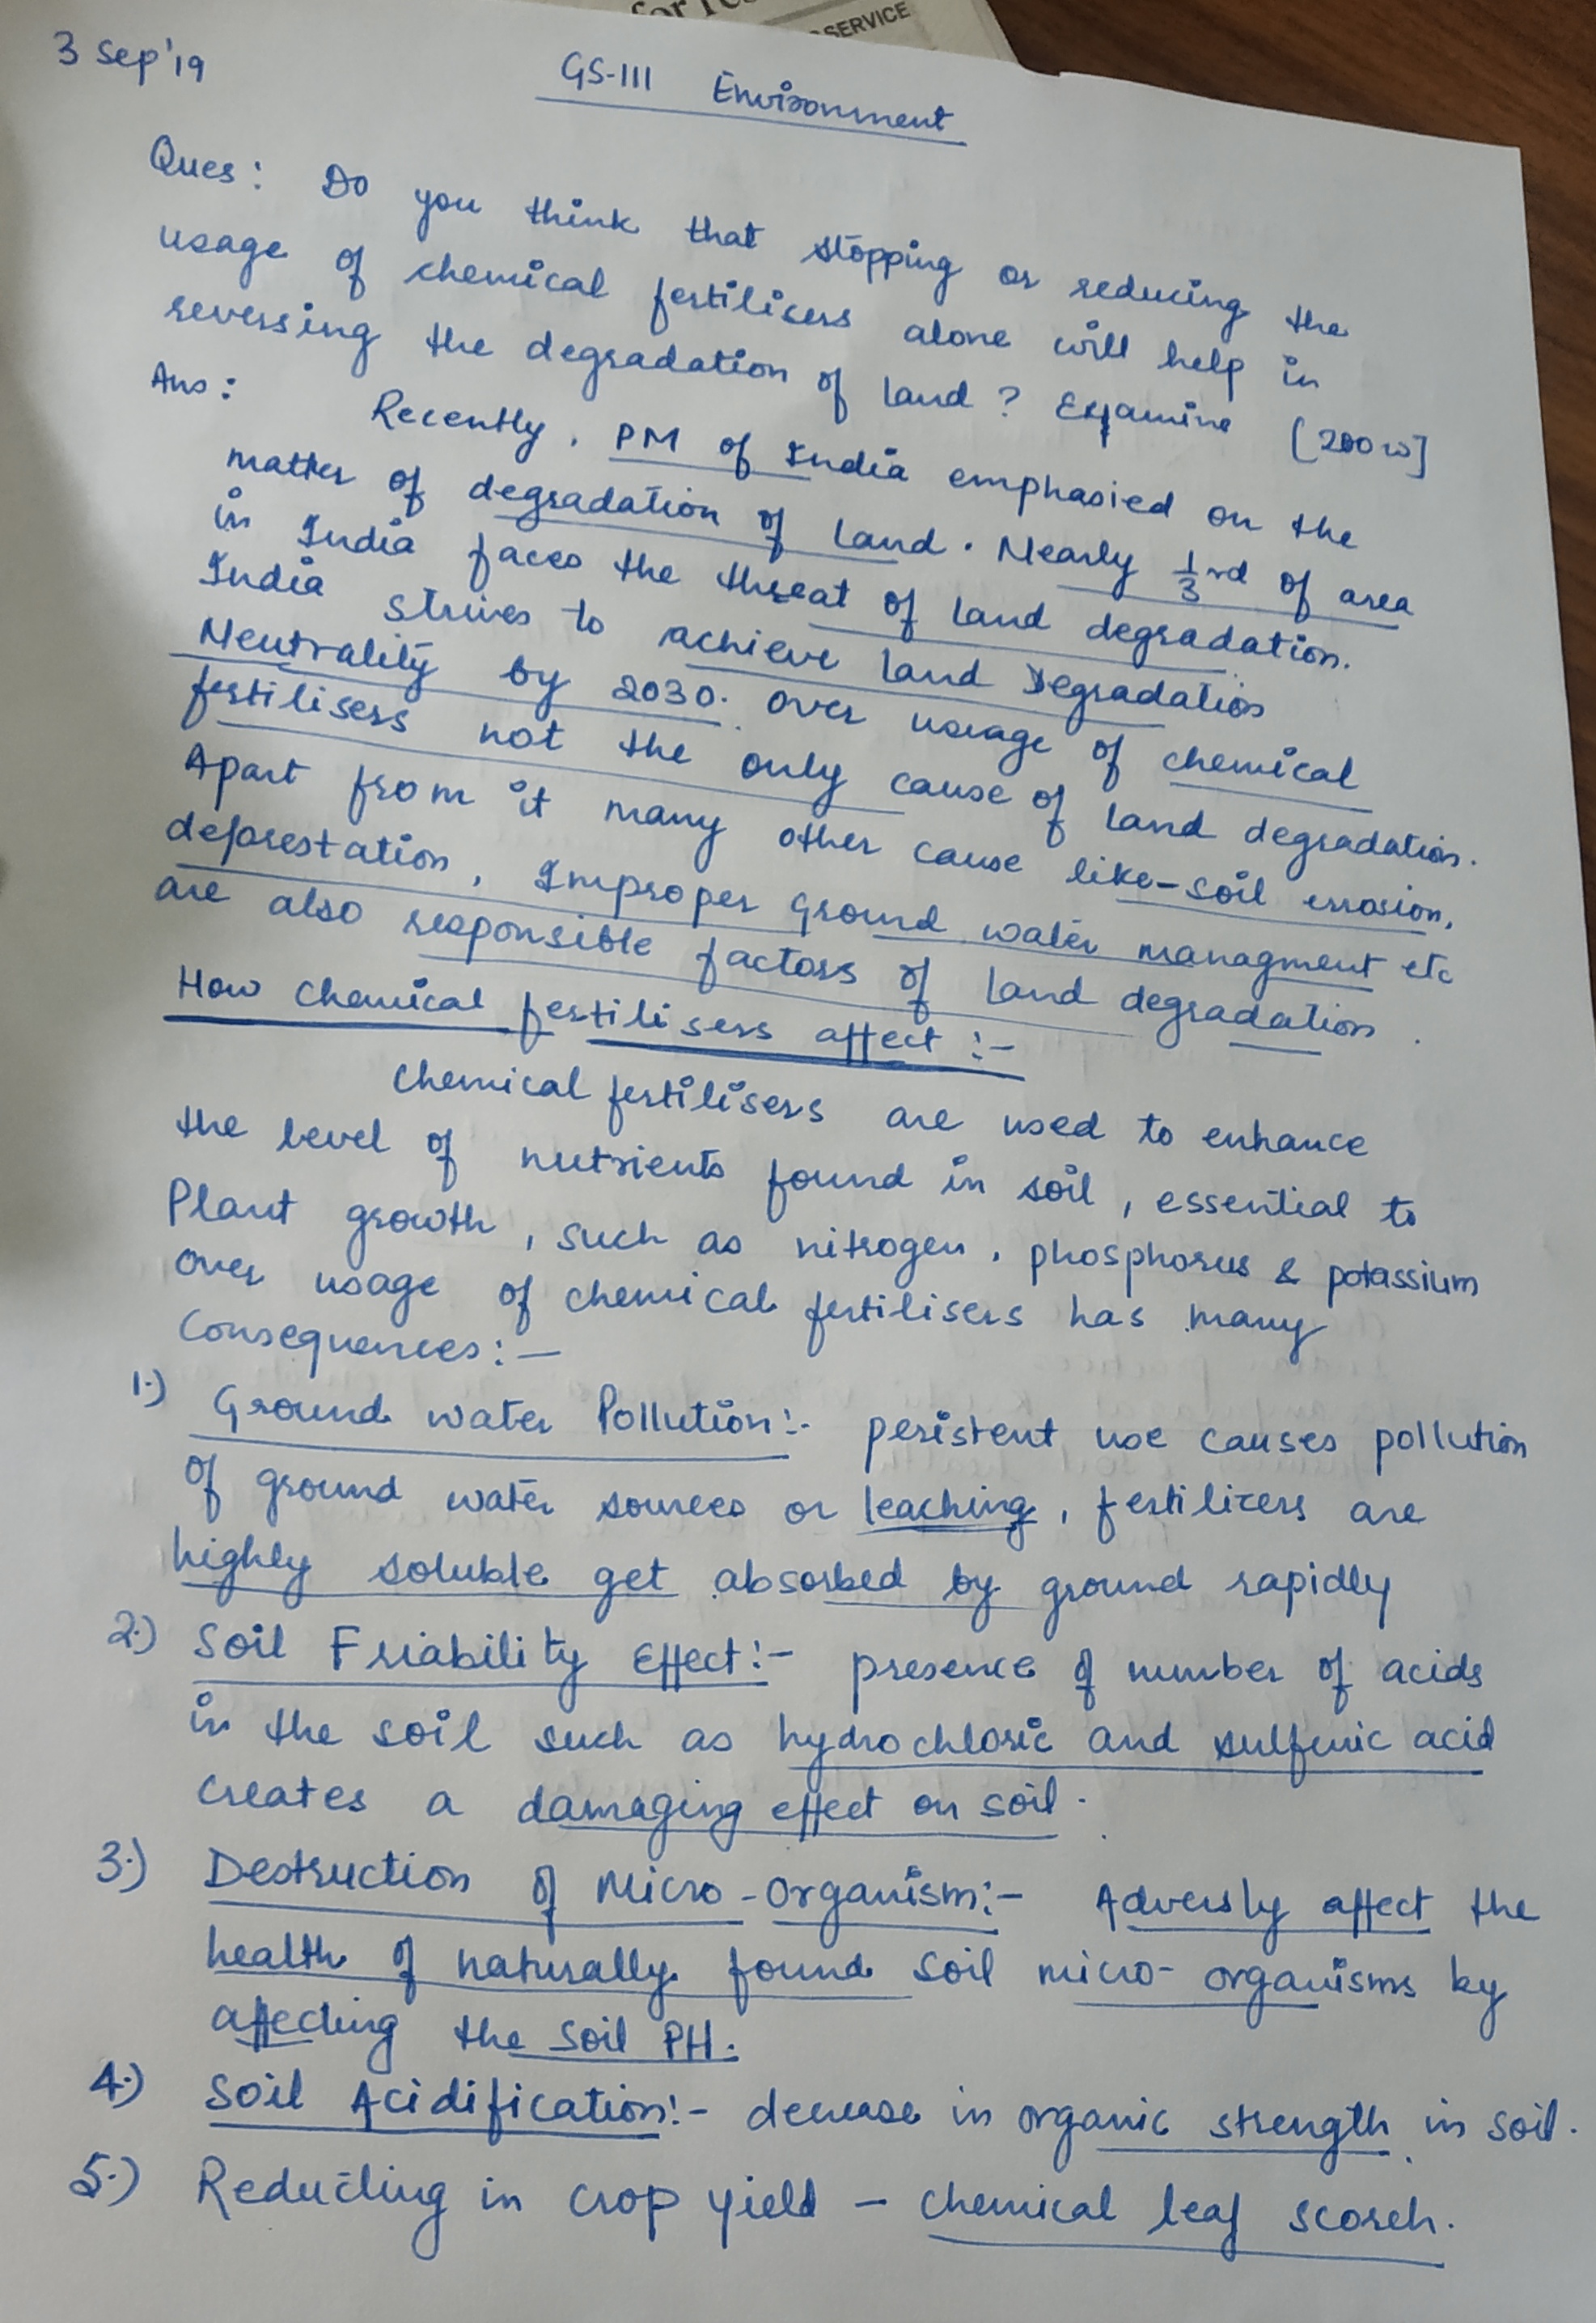 for res
SERVICE
3 Sep'19
GS-III Environment
Ques: Do you think that stopping or reducing the
usage of chemical fertilisers alone will help in
reversing the degradation of land? Examine [200w]
Ans: Recently, PM of India emphasied on the
matter of degradation of Land. Nearly 1/3rd of area
in India faces the threat of land degradation.
India strives to achieve land Degradation
Neutrality by 2030. Over useage of chemical
fertilisers not the only cause of land degradation.
Apart from it many other cause like-soil errosion,
deforestation, Improper Ground water managment etc
are also responsible factors of land degradation.
How chemical fertilisers affect :-
Chemical fertilisers are used to enhance
the level of nutrients found in soil, essential to
Plant growth, such as nitrogen, phosphorus & potassium
Over usage of chemical fertilisers has many
Consequences:-
1.) Ground water Pollution:- peristent use causes pollution
of ground water sources or leaching, fertilizers are
highly soluble get absorbed by ground rapidly
2.) Soil Friability Effect:- presence of number of acids
in the soil such as hydrochloric and sulfuric acid
creates a damaging effect on soil.
3.) Destruction of Micro-Organism:- Adversly affect the
health of naturally found soil micro-organisms by
affecting the soil PH.
4.) Soil Acidification:- decrease in organic strength in soil.
5.) Reducting in crop yield - chemical leaf scorch.